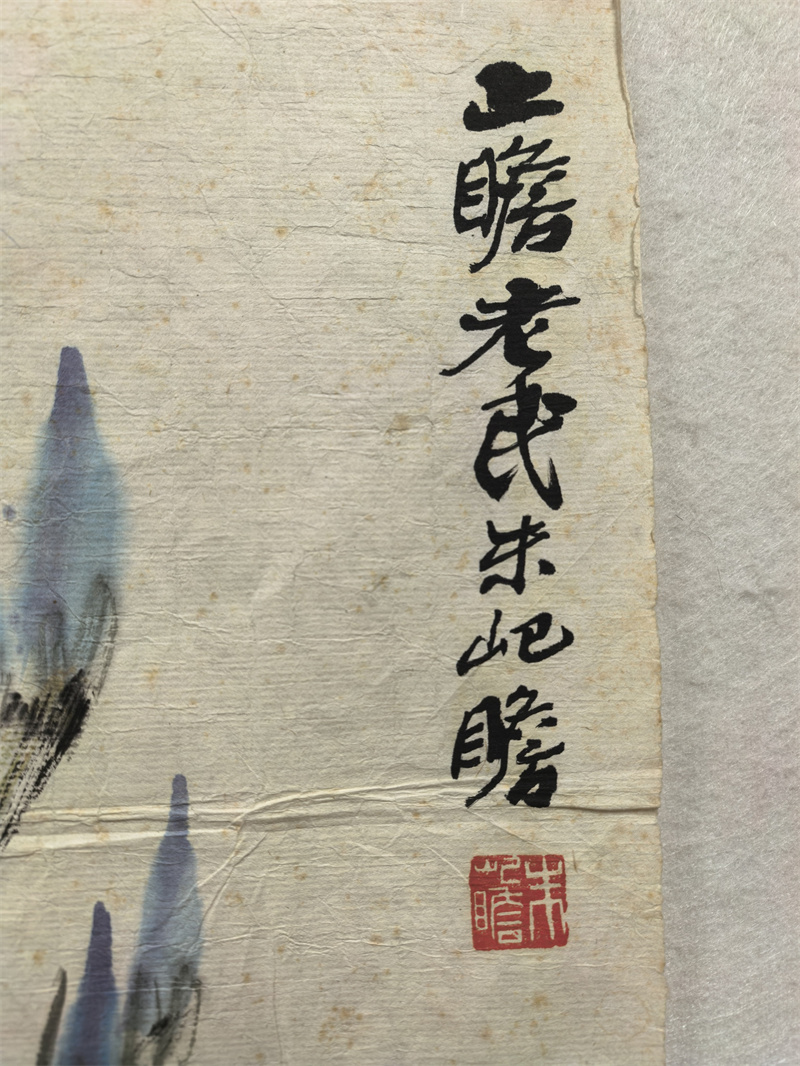 二瞻老民朱屺瞻
朱屺瞻